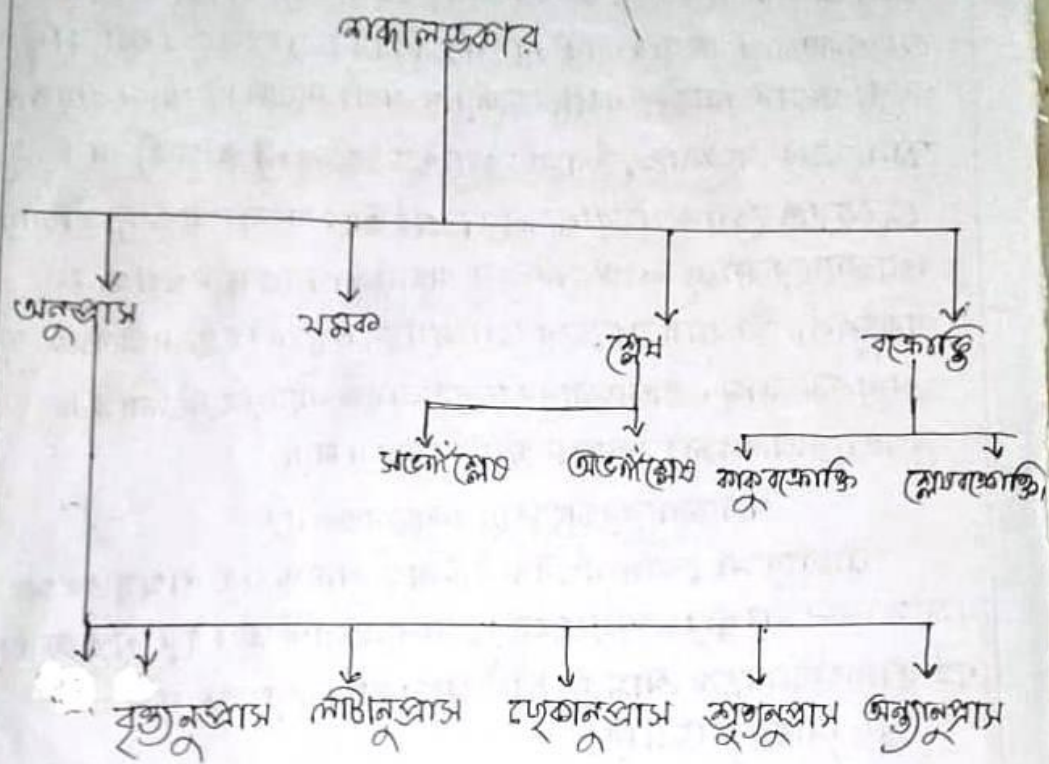 শব্দালঙ্কার
অনুপ্রাস যমক শ্লেষ বক্রোক্তি
সভঙ্গশ্লেষ অভঙ্গশ্লেষ কাকুবক্রোক্তি শ্লেষবক্রোক্তি।
বৃত্ত্যনুপ্রাস লাটানুপ্রাস ছেকানুপ্রাস শ্রুত্যনুপ্রাস অন্ত্যানুপ্রাস